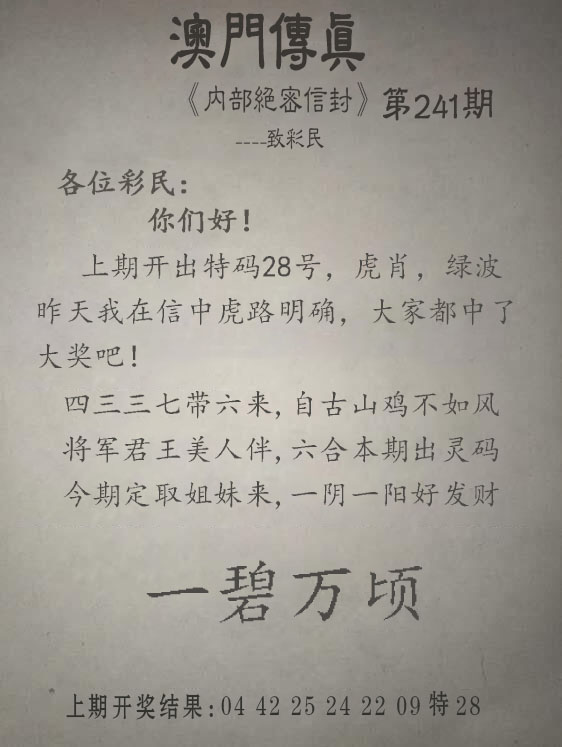 澳門傳真
《内部絕密信封》第241期
----致彩民
各位彩民：
你们好！
上期开出特码28号，虎肖，绿波
昨天我在信中虎路明确，大家都中了
大奖吧！
四三三七带六来,自古山鸡不如风
将军君王美人伴,六合本期出灵码
今期定取姐妹来,一阴一阳好发财
一碧万顷
上期开奖结果:04 42 25 24 22 09 特 28